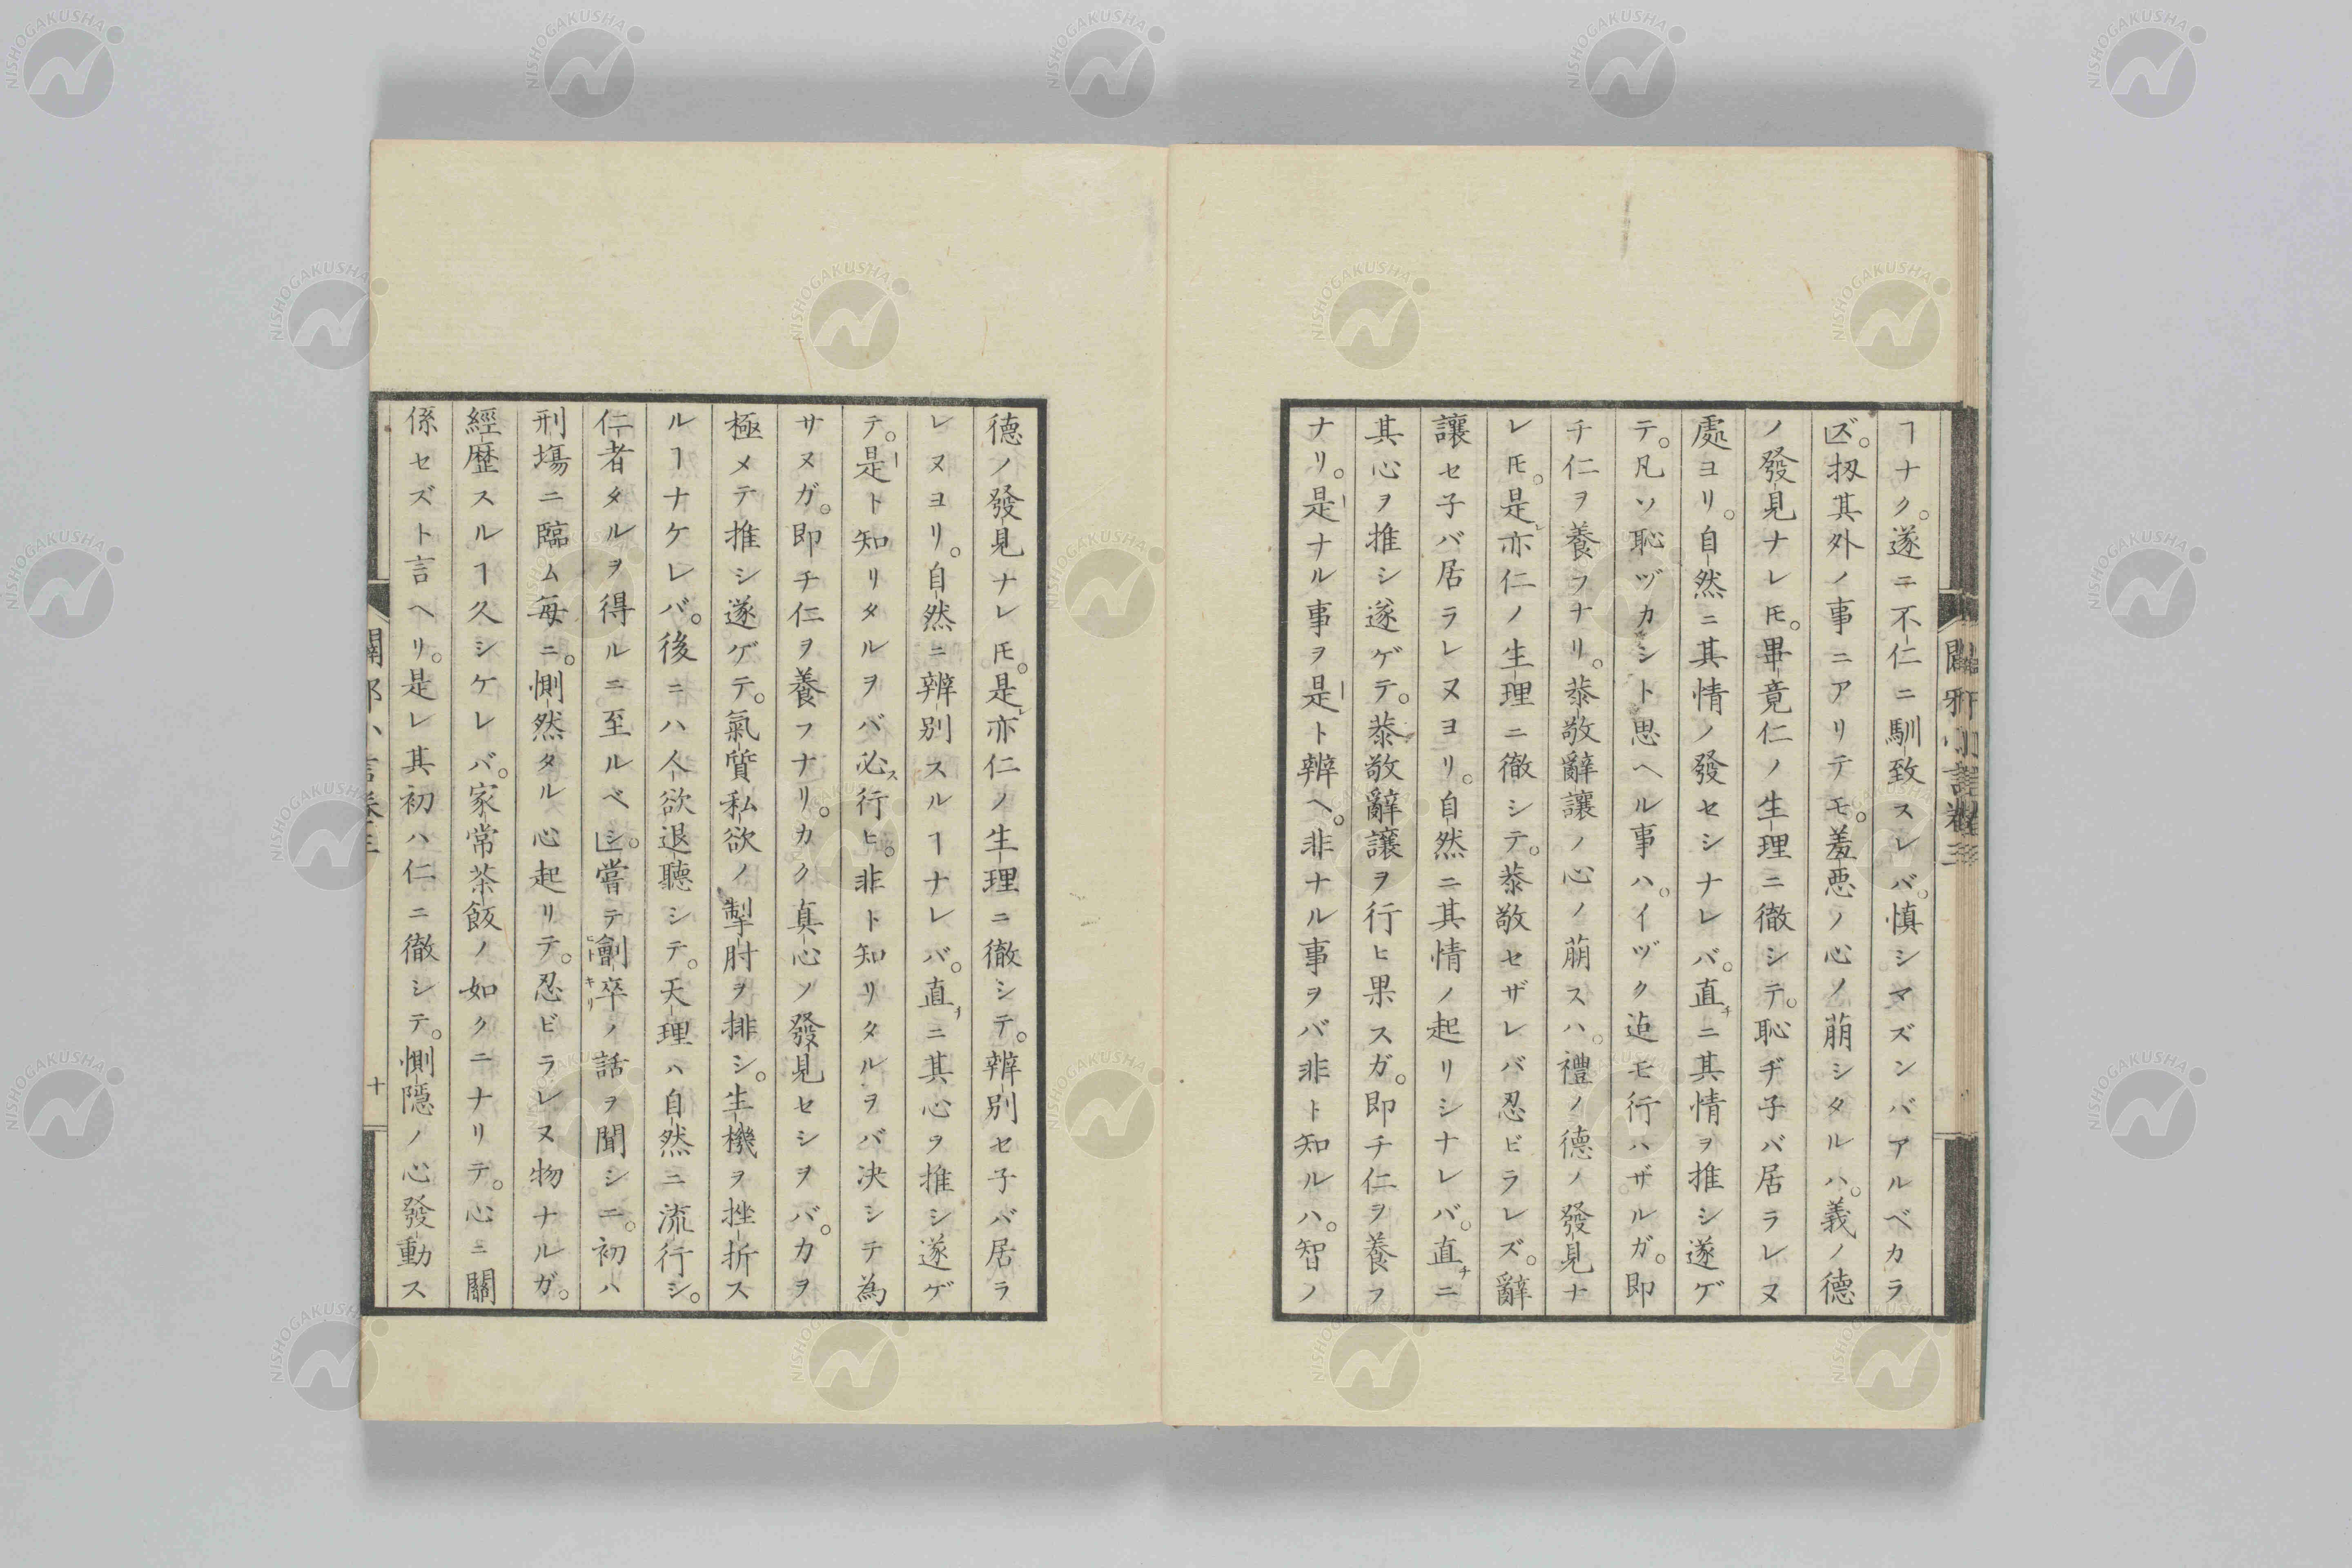 ヿナク。遂ニ不仁ニ馴致スレバ。慎シマズンバアルベカラ
ズ。扨其外ノ事ニアリテモ。羞悪ノ心ノ萠シタルハ。義ノ德
ノ發見ナレ𪜈。畢竟仁ノ生理ニ徹シテ。恥ヂ子バ居ラレヌ
處ヨリ。自然ニ其情ノ發セシナレバ。直チニ其情ヲ推シ遂ゲ
テ。凡ソ恥ヅカシト思ヘル事ハ。イヅク迠モ行ハザルガ。即
チ仁ヲ養フナリ。㳟敬辭讓ノ心ノ萠スハ。禮ノ德ノ發見ナ
レ𪜈。是レ亦仁ノ生理ニ徹シテ。㳟敬セザレバ忍ビラレズ。辭
讓セ子バ居ラレヌヨリ。自然ニ其情ノ起リシナレバ。直チニ
其心ヲ推シ遂ゲテ。㳟敬辭讓ヲ行ヒ果スガ。即チ仁ヲ養フ
ナリ。是ナル事ヲ是ト辨ヘ。非ナル事ヲバ非ト知ルハ。智ノ
德ノ發見ナレ𪜈。是レ亦仁ノ生理ニ徹シテ。辨別セ子バ居ラ
レヌヨリ。自然ニ辨別スルヿナレバ。直チニ其心ヲ推シ遂ゲ
テ。是ト知リタルヲバ必ス行ヒ。非ト知リタルヲバ決シテ為
サヌガ。即チ仁ヲ養フナリ。カク真心ノ發見セシヲバ。力ヲ
極メテ推シ遂ゲテ。氣質私欲ノ掣肘ヲ排シ。生機ヲ挫折ス
ルヿナケレバ。後ニハ人欲退聽シテ。天理ハ自然ニ流行シ。
仁者タルヲ得ルニ至ルベシ。嘗テ劊卒ノ話ヲ聞シニ。初ハ
ヒトキリ
刑塲ニ臨ム毎ニ。惻然タル心起リテ。忍ビラレヌ物ナルガ。
經歷スルヿ久シケレバ。家常茶飯ノ如クニナリテ。心ニ關
係セズト言ヘリ。是レ其初ハ仁ニ徹シテ。惻隱ノ心發動ス
十
NISHOGAKUSHA